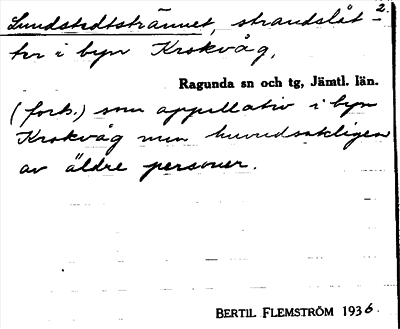 2.
Sundstedtstrännet, strandslåt-
ter i byn Krokvåg,
Ragunda sn och tg, Jämtl. län.
(forts.) som appellativ i byn
Krokvåg men huvudsakligen
av äldre personer.
BERTIL FLEMSTRÖM 1936.